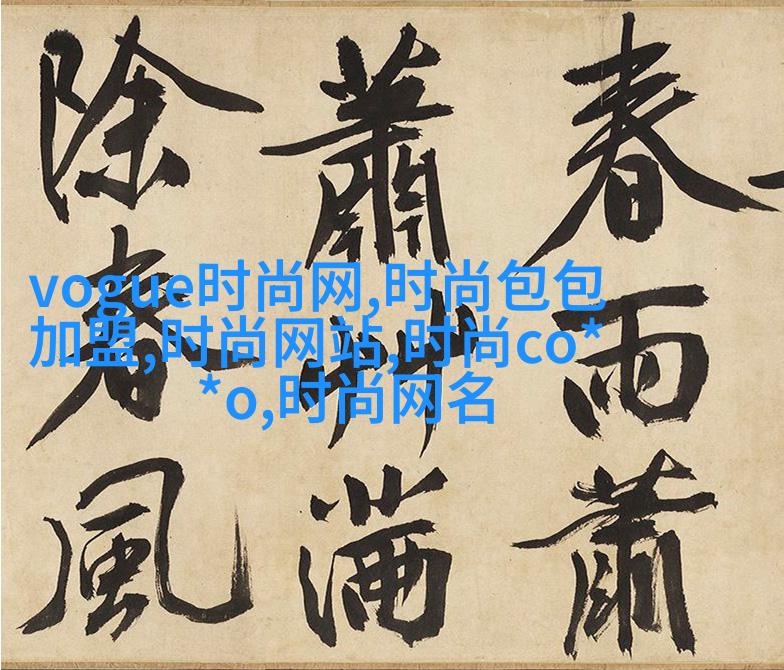 春雨蕭
蕭艸滿
除春風
vogue时尚网,时尚包包
加盟,时尚网站,时尚co*
*o,时尚网名